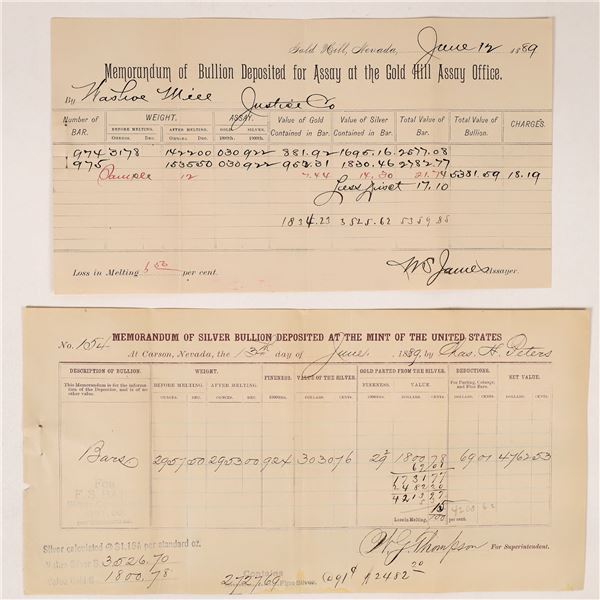 Gold Hill, Nevada, June 12 1889
Memorandum of Bullion Deposited for Assay at the Gold Hill Assay Office.
By Washoe Mill Justice Co
Number of BAR. WEIGHT. ASSAY. Value of Gold Contained in Bar. Value of Silver Contained in Bar. Total Value of Bar. Total Value of Bullion. CHARGES.
BEFORE MELTING. AFTER MELTING. GOLD. SILVER.
Ounces. Dec. Ounces. Dec. 1000ths. 1000ths.
974 3178 1422 00 030 922 881.92 1695.16 2577.08
975 1535 50 030 922 952.31 1830.46 2782.77
Sample 12 7.44 14.30 21.74 5381.59 18.19
17.10
1834.23 3525.62 5359 85
Loss in Melting per cent.
W S James Assayer.
MEMORANDUM OF SILVER BULLION DEPOSITED AT THE MINT OF THE UNITED STATES
No. 154
At Carson, Nevada, the 13th day of June 1889, by Chas. H. Peters
DESCRIPTION OF BULLION. WEIGHT. FINENESS. VALUE OF THE SILVER. GOLD PARTED FROM THE SILVER. DEDUCTIONS. NET VALUE.
This Memorandum is for the information of the Depositor, and is of no other value.
BEFORE MELTING. AFTER MELTING. 1000ths. FINENESS. VALUE. For Parting, Coinage, and Fine Bars.
OUNCES. DEC. OUNCES. DEC. DOLLARS. CENTS. 1000ths. DOLLARS. CENTS. DOLLARS. CENTS. DOLLARS. CENTS.
Bars 2957 00 2953 00 924 3030 76 29½ 1800 78 69 01 4762 53
1731 77
2482 20
4213 97
15
Loss in Melting, 100 per cent.
W. G. Thompson For Superintendent.
Silver calculated @ $1.16¼ per standard oz.
Value Silver $ 3526.70
Value Gold $ 1800.78
Contains
2727 69 Fine Silver. @91¢ $2482 20